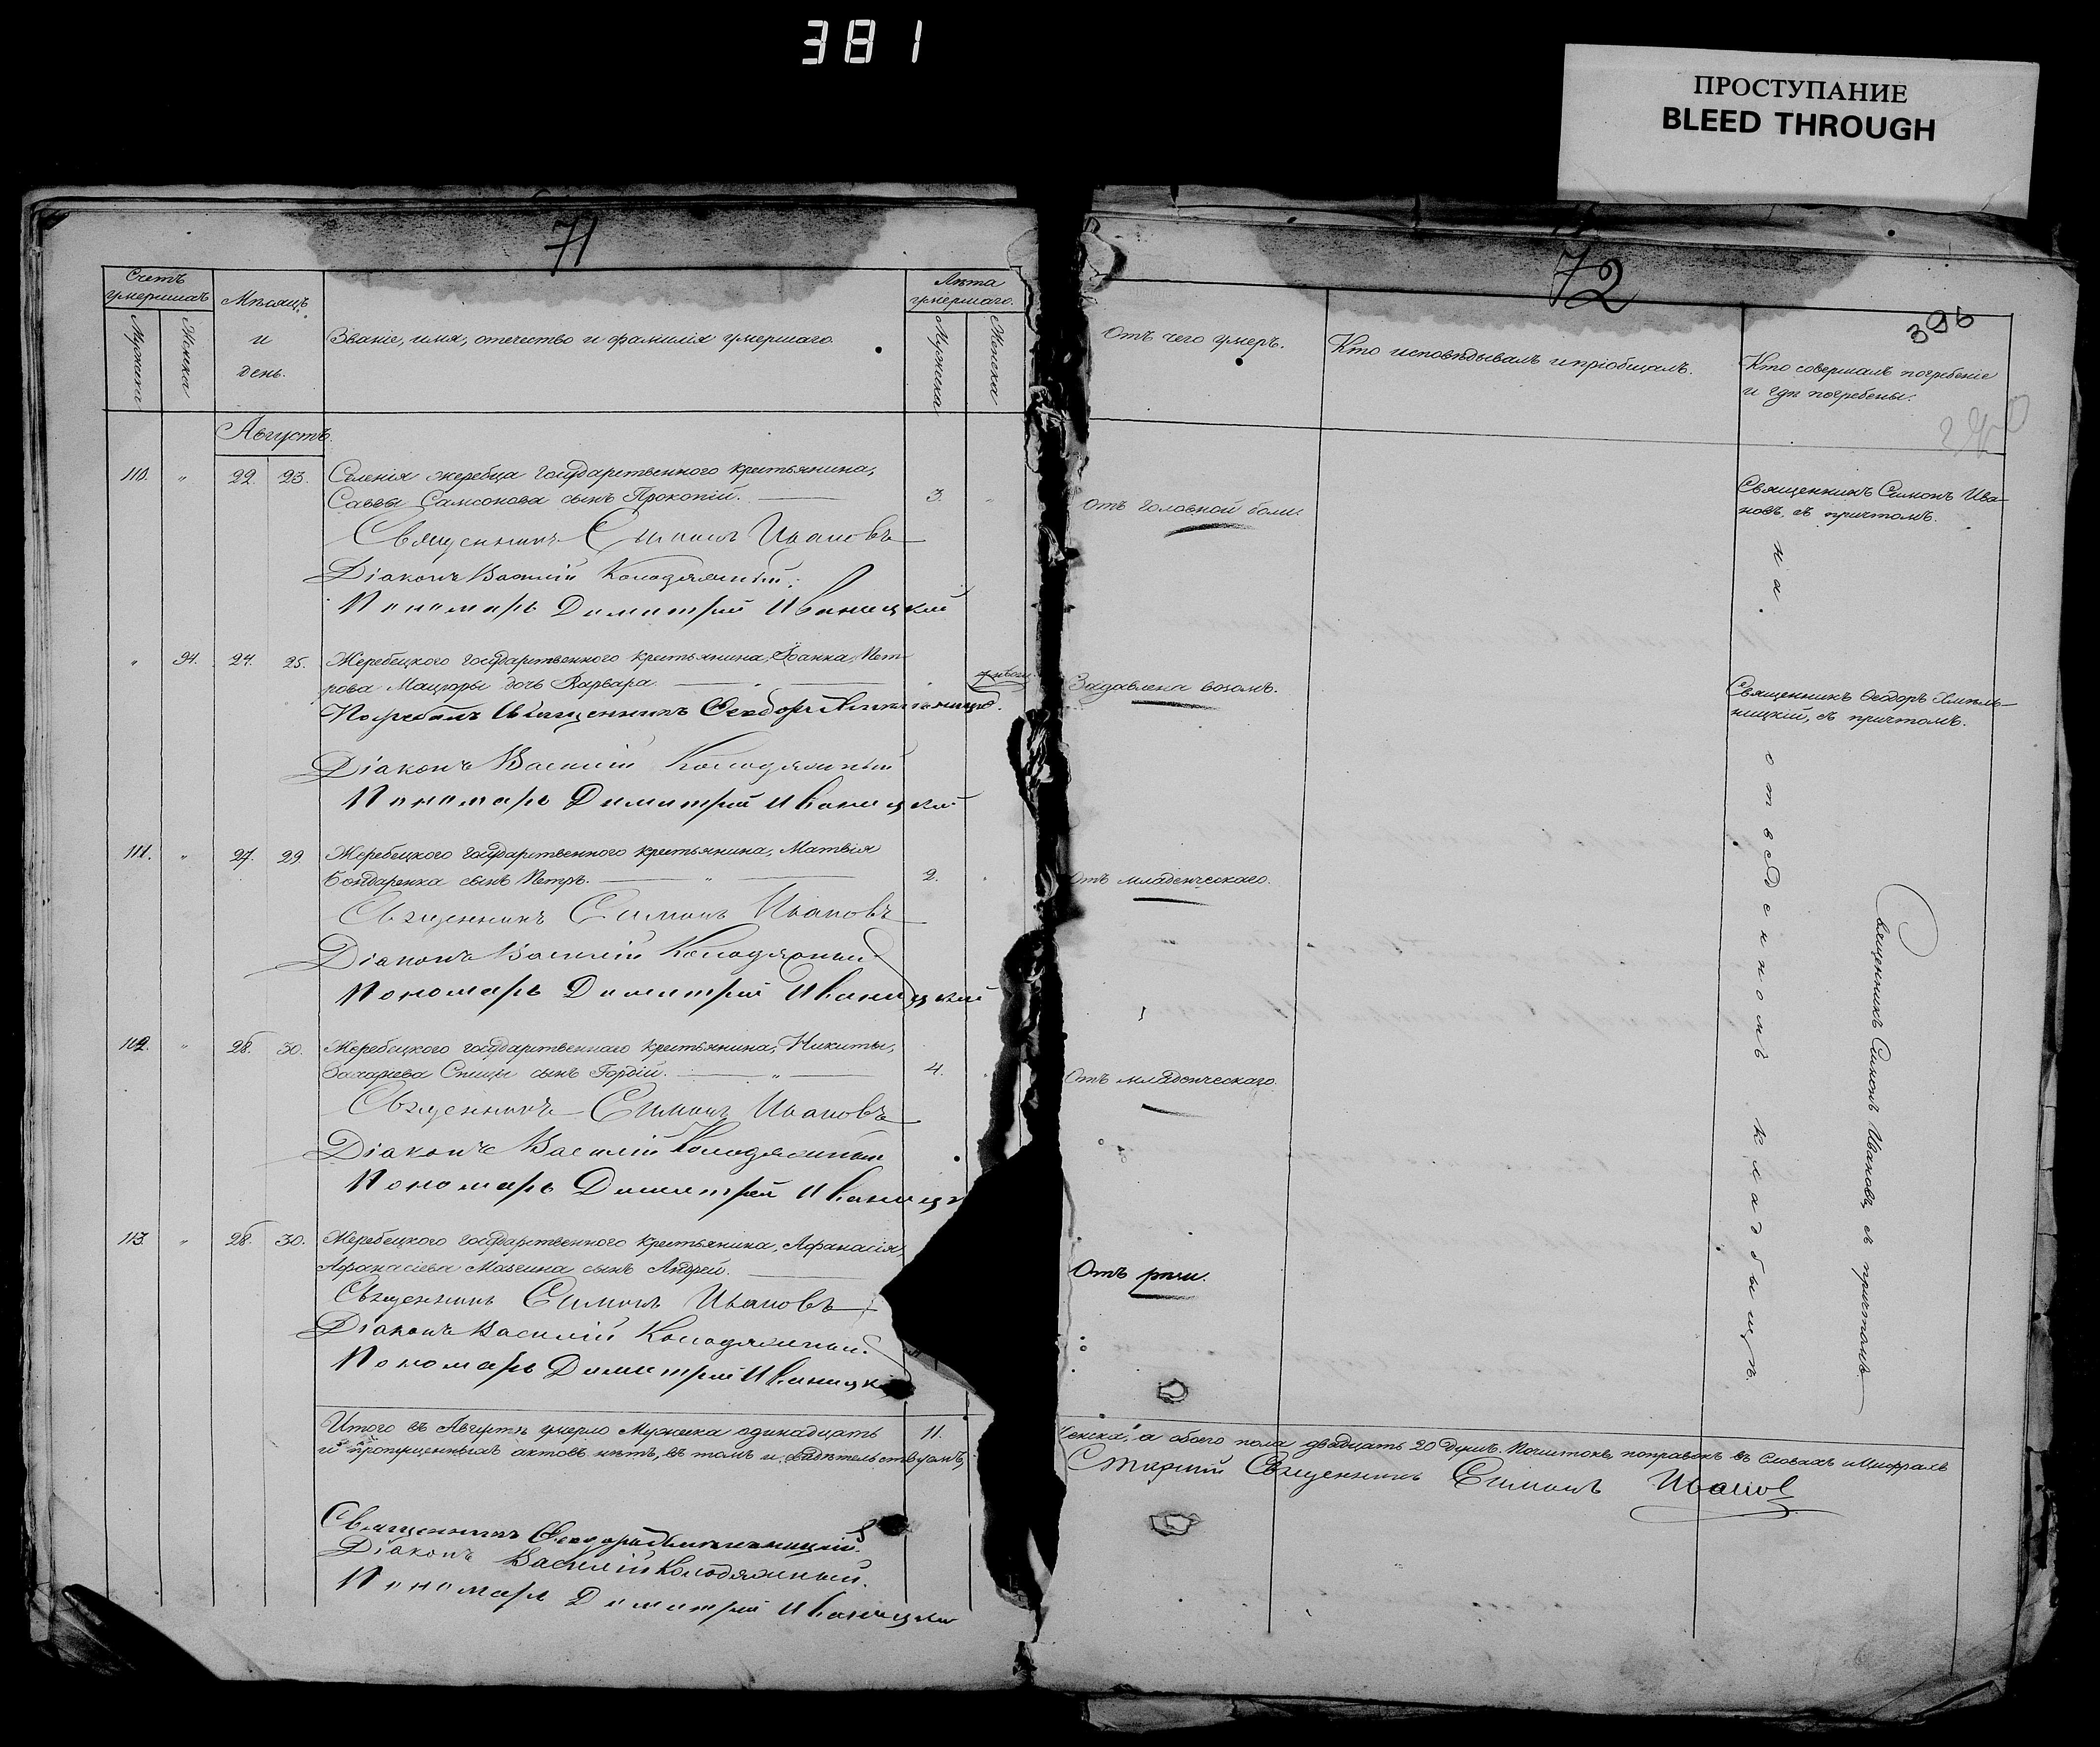 381
ПРОСТУПАНИЕ
BLEED THROUGH
71
Счетъ умершихъ
Мужеска
Женска
Мѣсяцъ и день.
Званіе, имя, отечество и фамилія умершаго.
Лѣта умершаго.
Мужеска
Женска
Августъ.
110. " 22. 23. Селенія жеребца Государственного крестьянина,
Саввы Самсонова сынъ Прокопій. 3. "
Священникъ Симонъ Ивановъ
Діаконъ Василій Колодяжный.
Пономарь Димитрій Иваницкій
" 94. 24. 25. Жеребецкого государственного крестьянина, Іоанна, Пет-
рова Мацюры дочь Варвара.
Погребалъ Священникъ Ѳеодоръ Хмельницкій.
Діаконъ Василій Колодяжный
Пономарь Димитрій Иваницкій
111. " 27. 29. Жеребецкого государственного крестьянина, Матвія
Бондаренка сынъ Петръ. " 2.
Священникъ Симонъ Ивановъ
Діаконъ Василій Колодяжный
Пономарь Димитрій Иваницкій
112. " 28. 30. Жеребецкого государственного крестьянина, Никиты,
Захаріева Спицы сынъ Гордій. " 4.
Священникъ Симонъ Ивановъ
Діаконъ Василій Колодяжный
Пономарь Димитрій Иваницк
113. " 28. 30. Жеребецкого государственного крестьянина, Афанасія,
Афанасіева сынъ Андрей.
Священникъ Симонъ Ивановъ
Діаконъ Василій Колодяжный.
Пономарь Димитрій Иваницкі
Итого въ Августѣ умерло Мужеска одинадцать 11.
и пропущенныхъ актовъ нѣтъ, въ томъ и свидѣтельствуемъ,
Священникъ Ѳеодоръ Хмельницкій.
Діаконъ Василій Колодяжный.
Пономарь Димитрій Иваницкій
72
396
Отъ чего умеръ.
Кто исповѣдывалъ и пріобщалъ.
Кто совершалъ погребеніе
и гдѣ погребены.
Отъ головной боли.
Священникъ Симонъ Ива-
новъ, съ причтомъ.
Задавлена возомъ.
Священникъ Ѳеодоръ Хмель-
ницкій, съ причтомъ.
Отъ младенческаго.
Отъ младенческаго.
Отъ рѣзи.
на отведенномъ кладбищѣ.
Священникъ Симонъ Ивановъ, съ причтомъ
женска, а обоего пола двадцать 20 душъ. Почистокъ, поправокъ въ словахъ и цифрахъ
Старшій Священникъ Симонъ Ивановъ